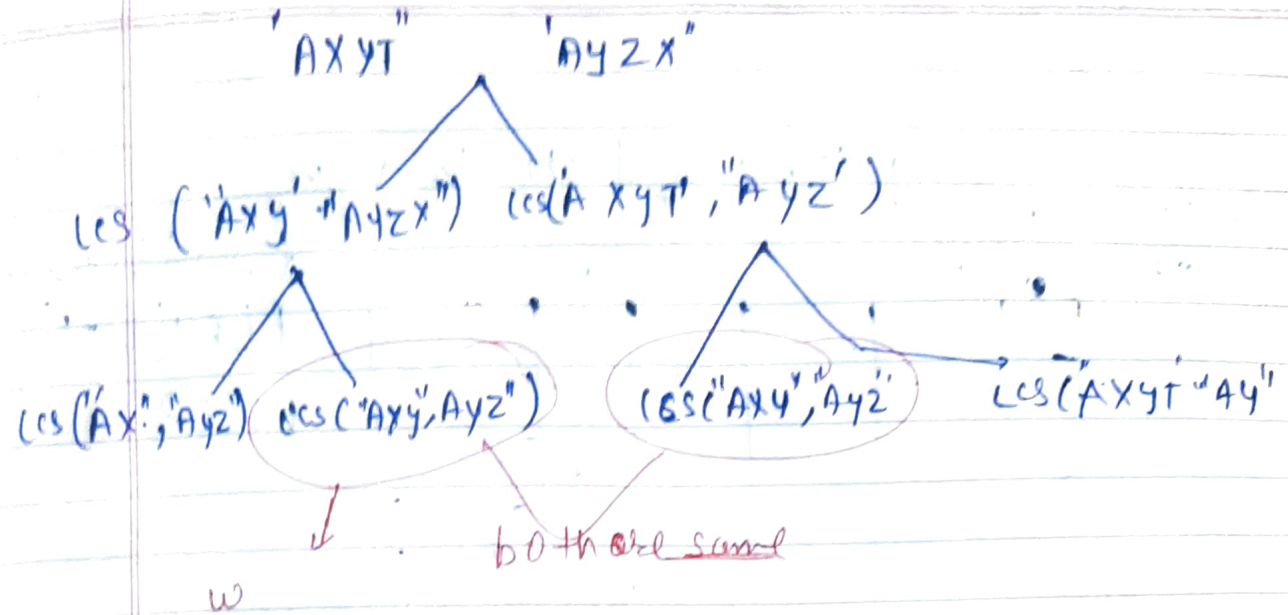 'AXYT" 'AYZX"
LCS ('AXY' "AYZX") LCS('AXYT', "AYZ')
LCS("AX", "AYZ") LCS("AXY", AYZ") LCS("AXY", "AYZ' LCS("AXYT' "AY"
both are same
w